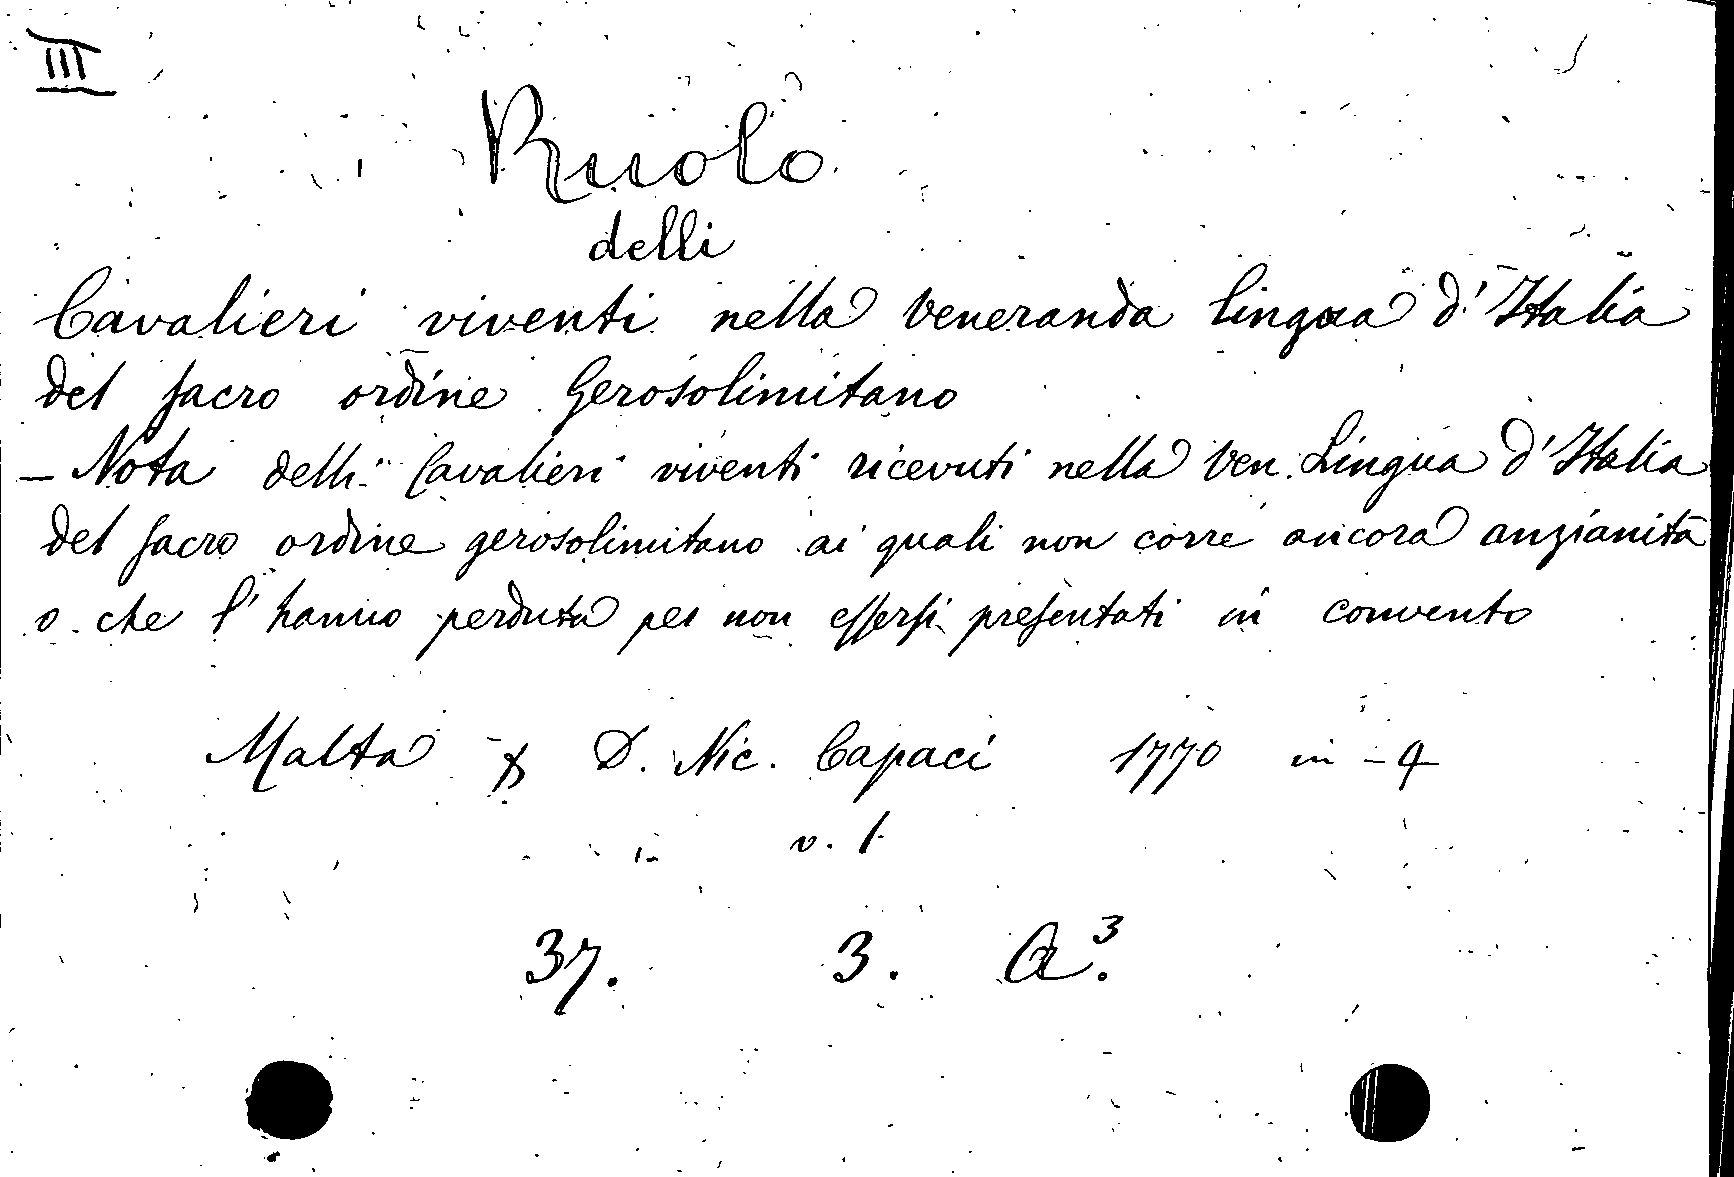 III
Ruolo
delli
Cavalieri viventi nella Veneranda Lingua d'Italia
del sacro ordine Gerosolimitano
– Nota delli Cavalieri viventi ricevuti nella Ven. Lingua d'Italia
del sacro ordine gerosolimitano ai quali non corre ancora anzianità
o che l'hanno perduta per non essersi presentati in convento
Malta D. Nic. Capaci 1770 in - 4
v. 1
37. 3. A.³